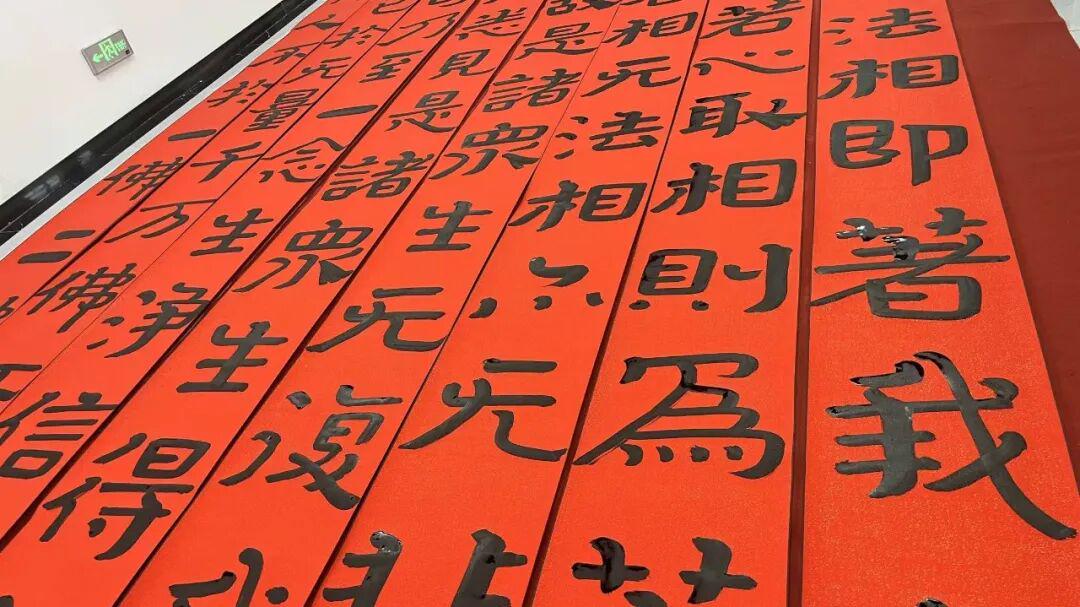 不於一佛二
於无量千万佛
乃至一念生淨信
悉見是諸衆生得
故是諸衆生无復我
相无法相亦无
若心取相則為
法相即著我